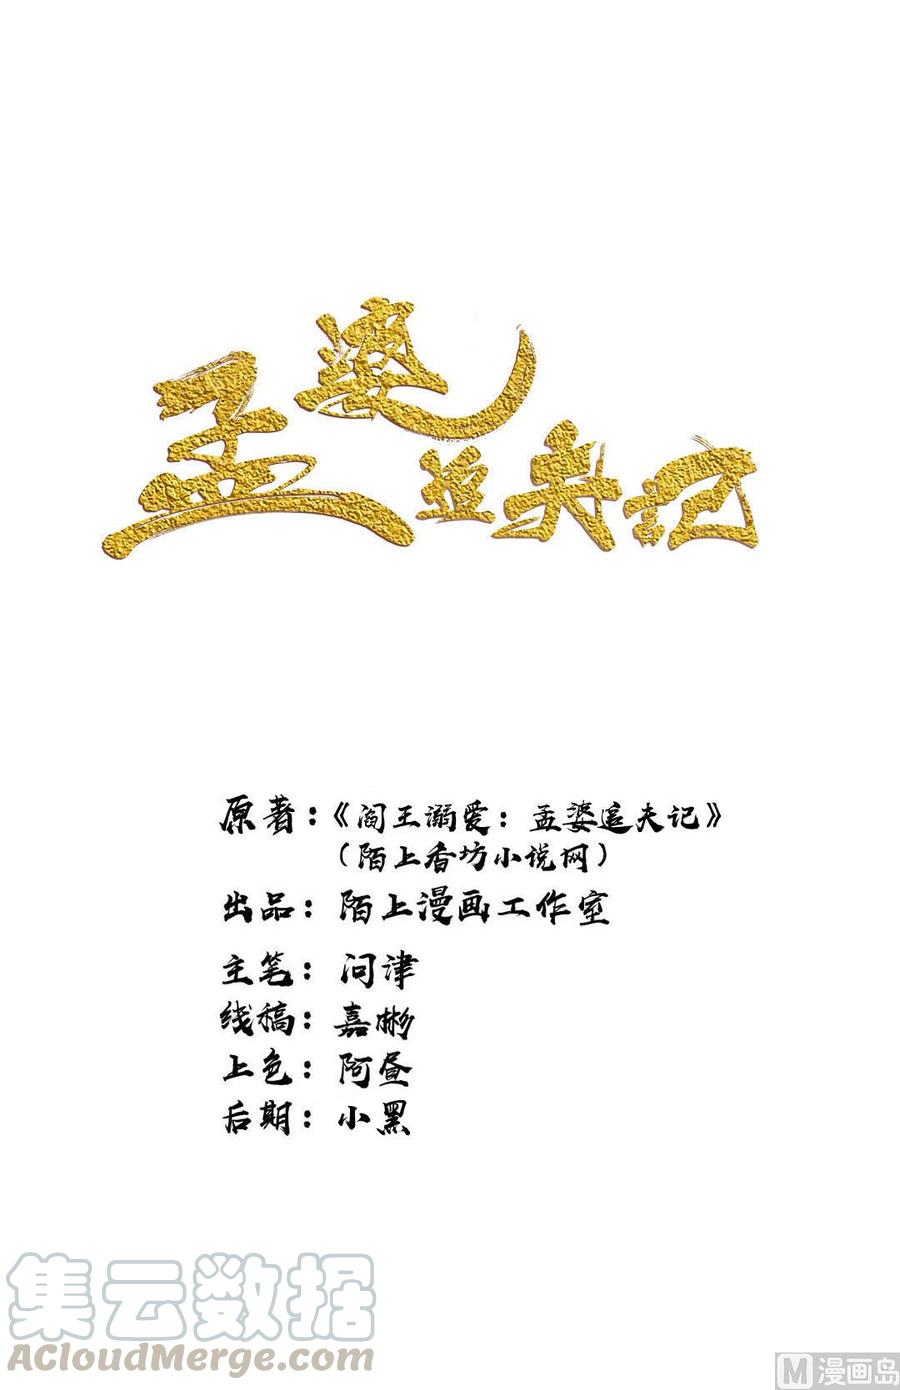 孟婆追夫记
原著：《阎王溺爱：孟婆追夫记》
（陌上香坊小说网）
出品：陌上漫画工作室
主笔：问津
线稿：嘉彬
上色：阿昼
后期：小黑
集云数据
AcloudMerge.com
M漫画岛